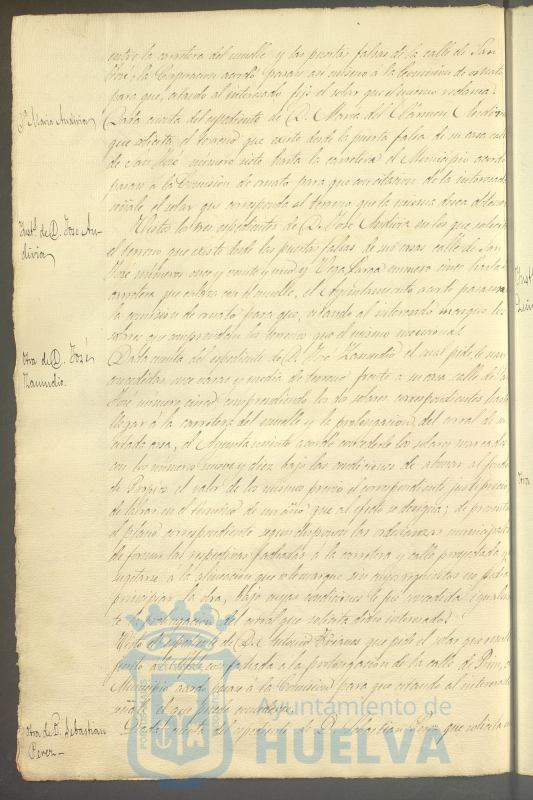 entre la carretera del muelle y las puertas falsas de la calle de San
José, la Corporacion acordó pasara asi mismo á la Comision de ornato
para que, citando al interesado fije el solar que el mismo reclama.
Dª Maria Andivia
Dada cuenta del espediente de Dª Maria del Cármen Andivia
que solicita el terreno que existe desde la puerta falsa de su casa calle
de San José número siete hasta la carretera el Municipio acordó
pasara á la Comision de ornato para que con citacion de la interesada
señale el solar que corresponda al terreno que la misma desea obtener.
Instª de D. José An-
divia
Vistos los tres espedientes de D. José Andivia en los que solicita
el terreno que existe desde las puertas falsas de sus casas calle de San
José números once y veinte y uno y Vega Larga número cinco hasta la
carretera que enlaza con el muelle, el Ayuntamiento acordó pasaran á
la comision de ornato para que, citando al interesado marque los
solares que comprendan los terrenos que el mismo menciona.
Otra de D. José
Zamudio.
Dada cuenta del espediente de D. José Zamudio el cual pide le sean
concedidas varas y media de terreno frente á su casa calle de San
José número cinco comprendiendo los dos solares correspondientes hasta
llegar á la carretera del muelle y la prolongacion del corral de su
citada casa, el Ayuntamiento acordó concederle los solares marcados
con los números nueve y diez bajo las condiciones de abonar al fondo
de Propios el valor de los mismos previo el correspondiente justiprecio
de labrar en el término de un año que al efecto se designa; de presentar
el plano correspondiente segun disponen las ordenanzas municipales
de formar las respectivas fachadas á la carretera y calle proyectada y
sugetarse á la alineacion que se le marque sin cuyo requisito no podrá
principiar la obra, bajo cuyas condiciones le fué concedida igualmen-
te la prolongacion del corral que solicita dicho interesado.
Visto el espediente de D. Antonio que pide el solar que
con fachada á la prolongacion de la calle de Prim, el
Municipio acordó pasar á la Comision para que citando al interesado
señale el que puede concederse.
Otra de D. Sebastian
Perez
Dada cuenta del espediente de D. Sebastian Perez que solicita
Inst
Otra
Ayuntamiento de
HUELVA